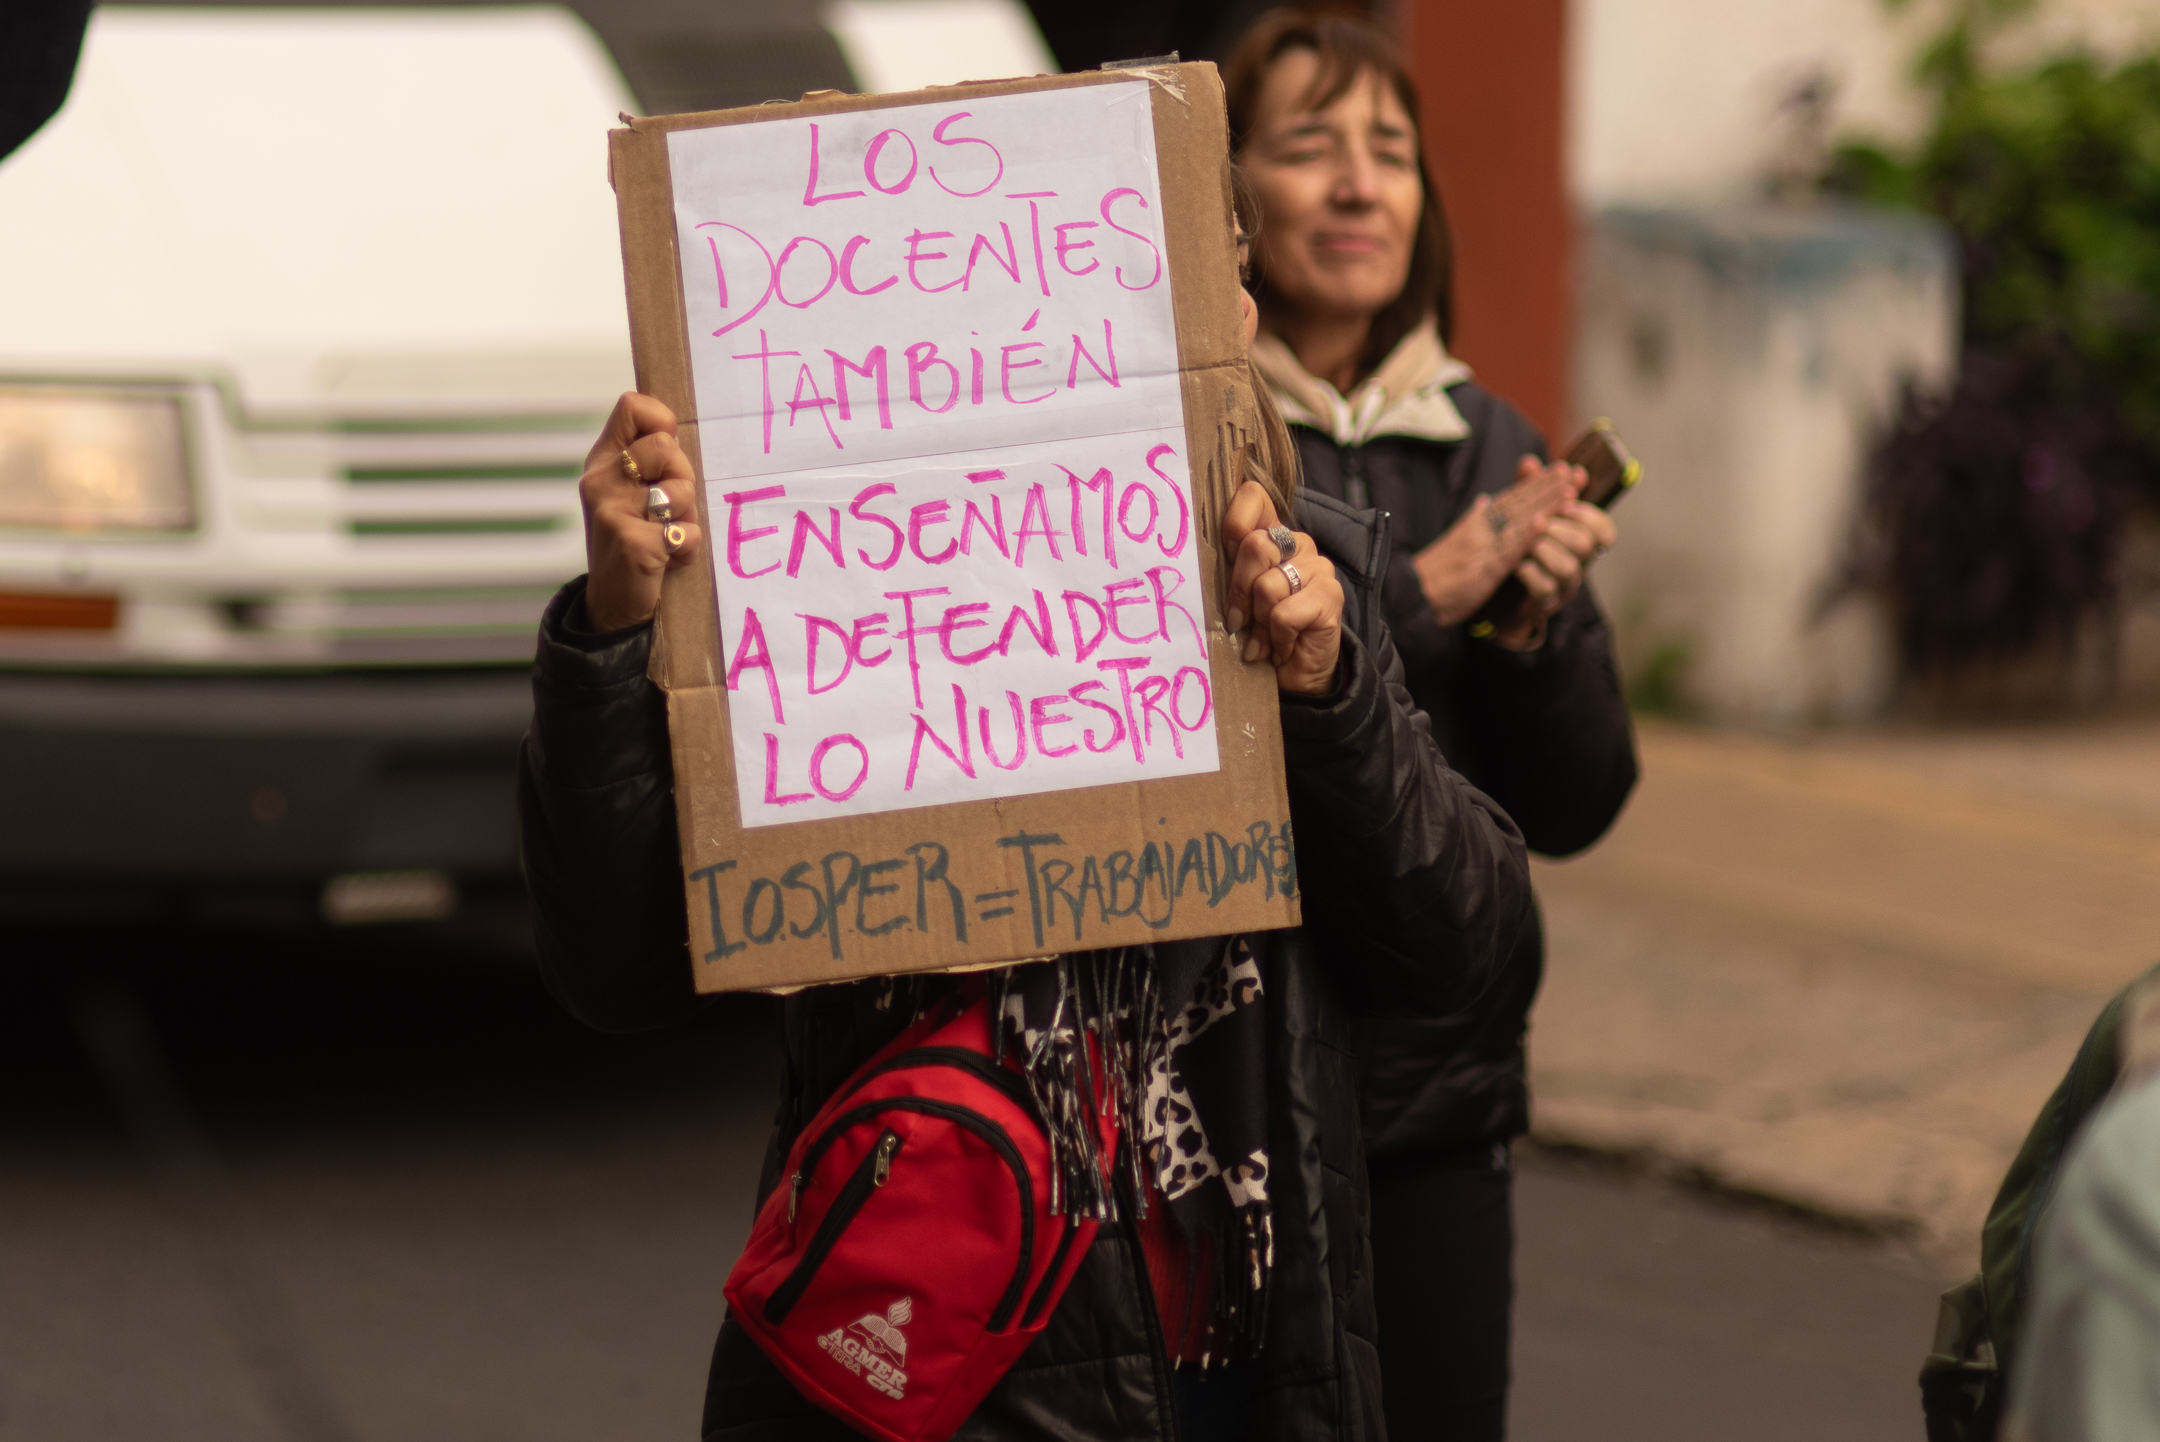 LOS
DOCENTES
TAMBIÉN
ENSEÑAMOS
A DEFENDER
LO NUESTRO
I.O.S.P.E.R. = TRABAJADORES
AGMER
CTERA CTA